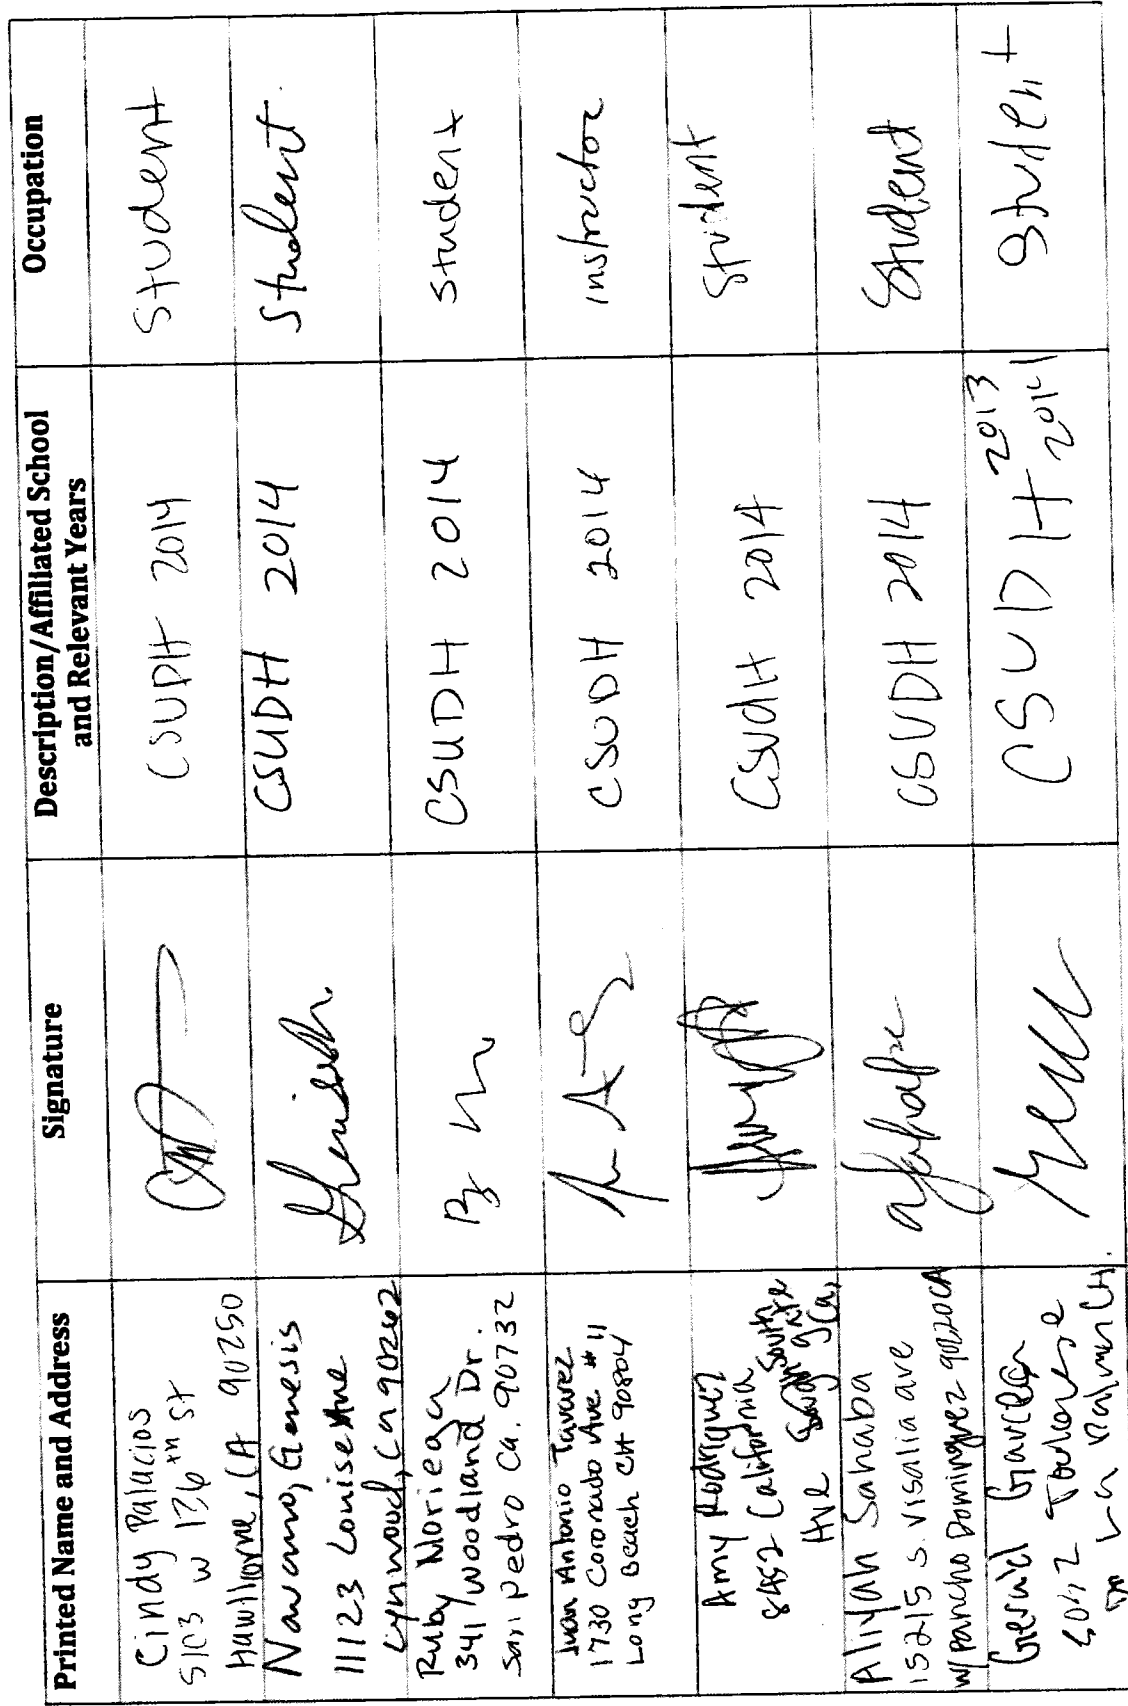 Printed Name and Address
Signature
Description/Affiliated School
and Relevant Years
Occupation
Cindy Palacios
5103 W 126th St
Hawthorne, CA 90250
CSUDH 2014
Student
Navarro, Genesis
11123 Louise Ave
Lynwood, Ca 90262
CSUDH 2014
Student
Ruby Noriega
341 Woodland Dr.
San Pedro Ca. 90732
CSUDH 2014
Student
Juan Antonio Tavarez
1730 Coronado Ave #11
Long Beach CA 90804
CSUDH 2014
instructor
Amy Rodriguez
8452 California
Ave South gate
Ca,
CSUdH 2014
Student
Aliyah Sahaba
15215 S. Visalia ave
W/ Rancho Dominguez 90220 CA
CSUDH 2014
Student
Gerald
La
CSUDH 2013
2014
Student